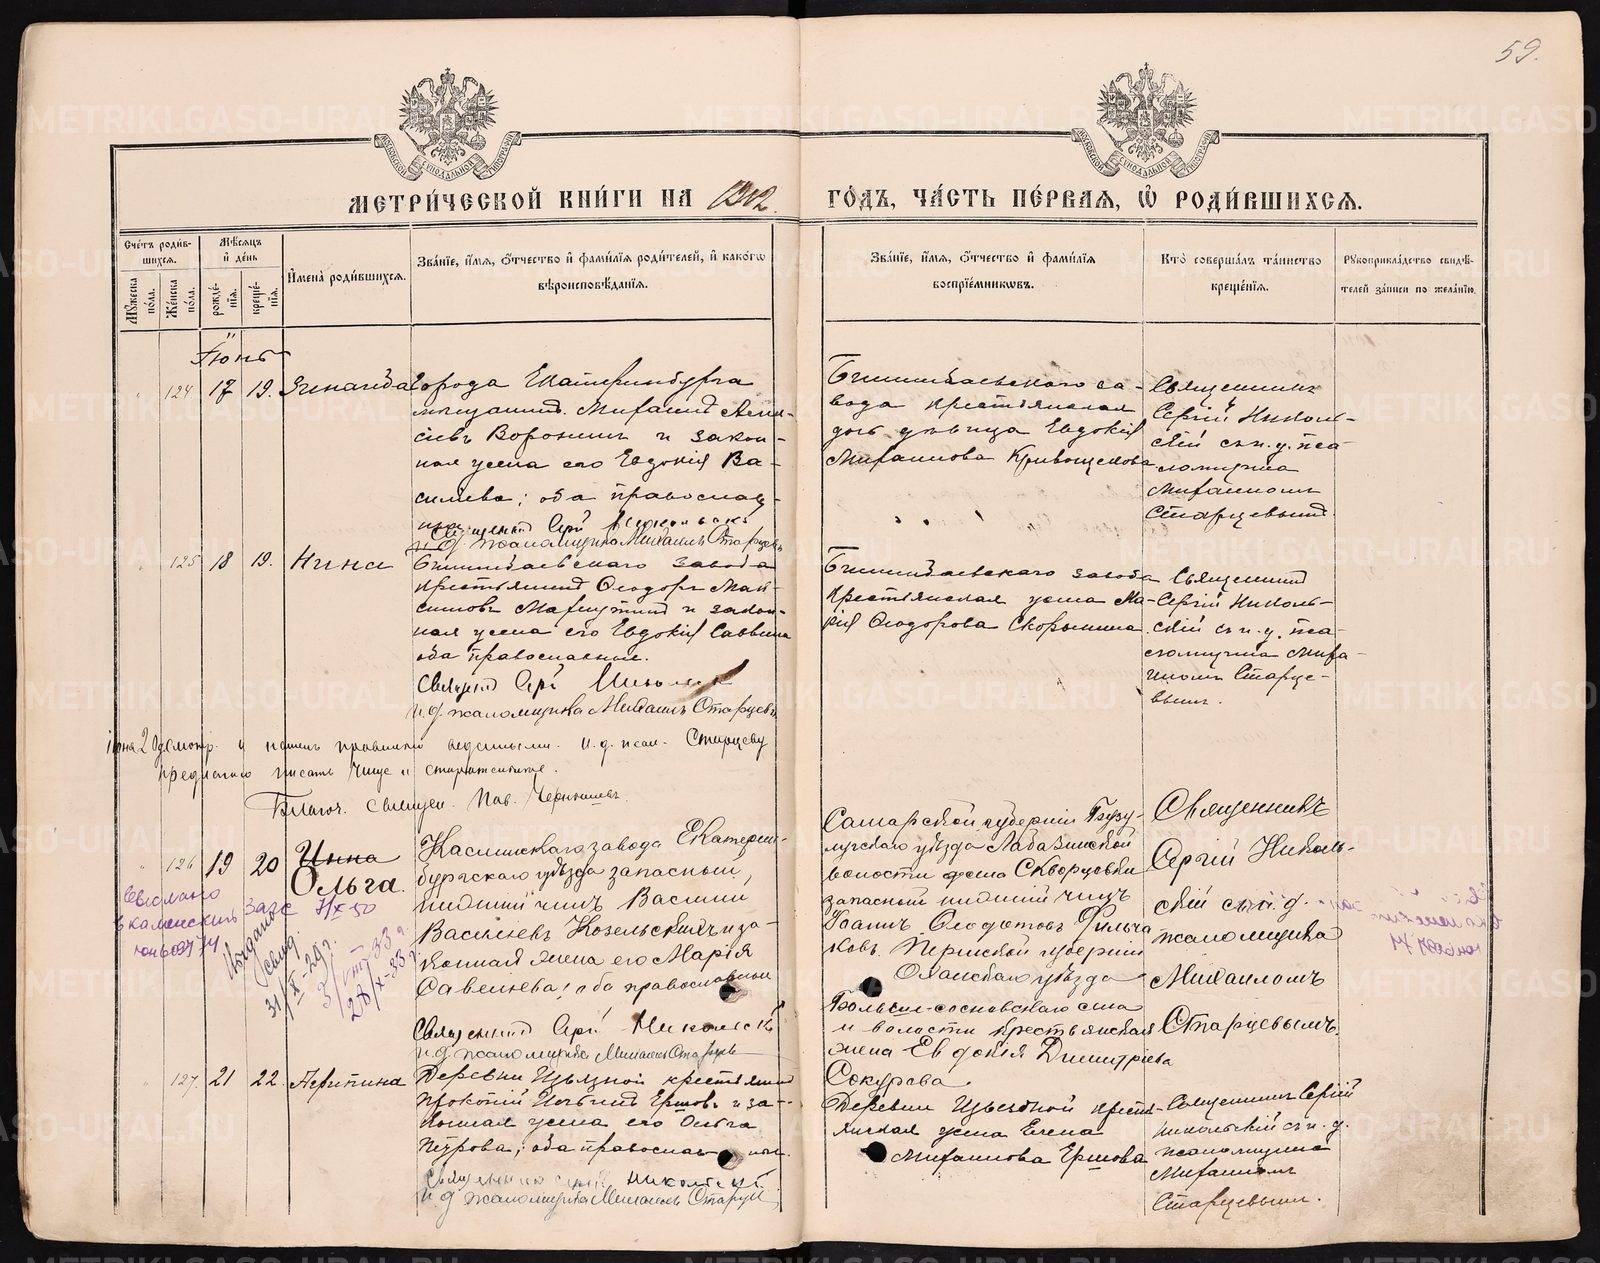 59.
МОСКОВСКОЙ СѴНОДАЛЬНОЙ ТИПОГРАФІИ
МОСКОВСКОЙ СѴНОДАЛЬНОЙ ТИПОГРАФІИ
МЕТРИ́ЧЕСКОЙ КНИ́ГИ НА 1912
ГО́ДЪ, ЧА́СТЬ ПЕ́РВАѦ, Ѡ҆ РОДИ́ВШИХСѦ.
Сче́тъ роди́в-
шихсѧ.
Мѣ́сѧцъ
и҆ де́нь
Мꙋ́жеска
по́ла.
Же́нска
по́ла.
рожде́-
нїѧ.
креще́-
нїѧ.
И҆мена̀ роди́вшихсѧ.
Зва́нїе, и҆́мѧ, ѻ҆́тчество и҆ фами́лїѧ роди́телей, и҆ како́гѡ
вѣроисповѣ́данїѧ.
Зва́нїе, и҆́мѧ, ѻ҆́тчество и҆ фами́лїѧ
воспрїе́мникѡвъ.
Кто̀ соверша́лъ та́инство
креще́нїѧ.
Рꙋкоприкла́дство свидѣ́-
телей за́писи по жела́нїю.
Іюнь
124 17 19. Зинаида
Города Екатеринбурга
мѣщанинъ Михаилъ
Воронинъ и закон-
ная жена его Евдокія Ва-
сильева; оба православ-
ные
Священникъ Сергій Никольскій
и.д. псаломщика Михаилъ Старцевъ
Билимбаевского за-
вода крестьянская
дочь дѣвица Евдокія
Михаилова Кривощекова
Священникъ
Сергій Николь-
скій съ и.д. пса-
ломщика
Михаиломъ
Старцевымъ.
125 18 19. Нина
Билимбаевскаго завода
крестьянинъ Ѳеодоръ Мак-
симовъ и закон-
ная жена его Евдокія Саввина
оба православные.
Священникъ Сергій Никольскій
и.д. псаломщика Михаилъ Старцевъ
Билимбаевскаго завода
крестьянская жена Ма-
рія Ѳеодорова Скорынина
Священникъ
Сергій Николь-
скій съ и.д. пса-
ломщика Миха-
иломъ Старце-
вымъ.
и нашелъ правильно веденными. и.д. псал. Старцеву
предлагаю писать чище и старательнѣе.
Благоч. священ. Пав. Чернышевъ
126 19 20 Инна
Ольга.
Каслинскаго завода Екатерин-
бургскаго уѣзда запасный
нижній чинъ Василій
Васильевъ Козельскихъ и за-
конная жена его Марія
Савельева; оба православные
Священникъ Сергій Никольскій
и.д. псаломщика Михаилъ Старцевъ
Самарской губерніи Бузу-
лукскаго уѣзда
волости села Скворцовки
запасный нижній чинъ
Іоаннъ Филичка
ковъ. Пермской губерніи
Оханскаго уѣзда
Больше-сосновскаго села
и волости крестьянская
жена Евдокія Димитріева
Сокурова.
Священникъ
Сергій Николь-
скій съ и.д.
псаломщика
Михаиломъ
Старцевымъ.
Выслано
в каменский загс
127. 21 22. Агрипина
Деревни крестьянинъ
Прокопій Ершовъ и за-
конная жена его Ольга
Петрова; оба православные.
Священникъ Сергій Никольскій
и.д. псаломщика Михаилъ Старцевъ
Деревни крестья-
янская жена Елена
Михаилова Ершова
Священникъ Сергій
Никольскій съ и.д.
псаломщика
Михаиломъ
Старцевымъ.
METRIKI.GASO-URAL.RU